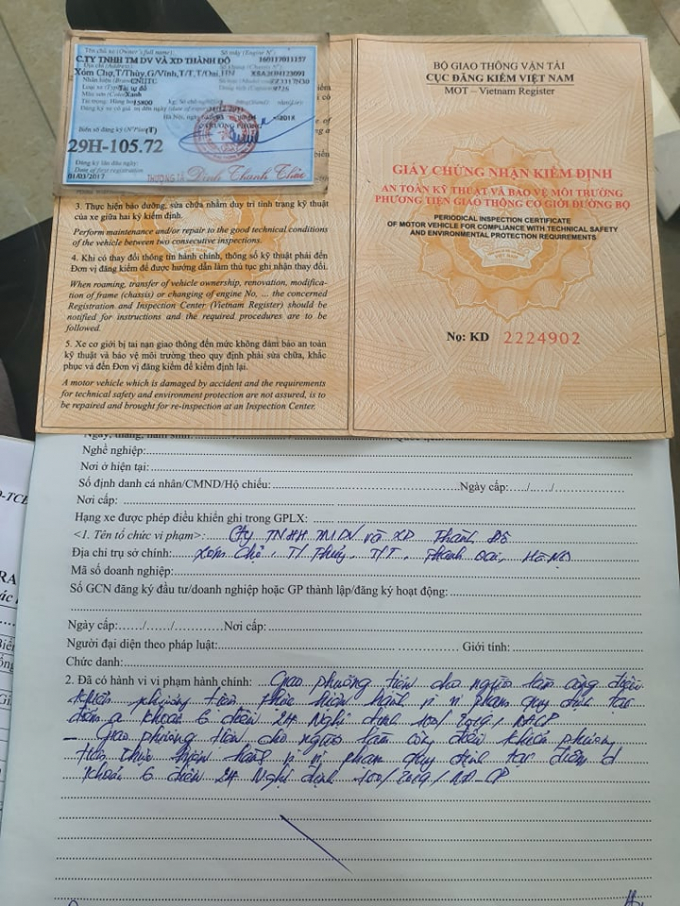 Tên chủ xe (Owner's full name): Số máy (Engine N°)
C.TY TNHH TM DV VÀ XD THÀNH ĐÔ 160117011137
Địa chỉ (Address):
Xóm Chợ,T/Thủy,G/Vĩnh,T/T,T/Oai,HN
Nhãn hiệu (Brand): CNHTC
Loại xe (Type): Tải tự đổ
Màu sơn (Color): Xanh
Tải trọng: Hàng hóa: 15800
Hà Nội,
Biển số đăng ký (N° Plate)(T)
29H-105.72
Đăng ký lần đầu ngày:
Date of first registration
01/03/2017 THƯỢNG TÁ Đinh Thanh Thảo
3. Thực hiện bảo dưỡng, sửa chữa nhằm duy trì tình trạng kỹ thuật
của xe giữa hai kỳ kiểm định.
Perform maintenance and/or repair to the good technical conditions
of the vehicle between two consecutive inspections.
4. Khi có thay đổi thông tin hành chính, thông số kỹ thuật phải đến
Đơn vị đăng kiểm để được hướng dẫn làm thủ tục ghi nhận thay đổi.
When roaming, transfer of vehicle ownership, renovation, modifica-
tion of frame (chassis) or changing of engine No, ... the concerned
Registration and Inspection Center (Vietnam Register) should be
notified for instructions and the required procedures are to be
followed.
5. Xe cơ giới bị tai nạn giao thông đến mức không đảm bảo an toàn
kỹ thuật và bảo vệ môi trường theo quy định phải sửa chữa, khắc
phục và đến Đơn vị đăng kiểm để kiểm định lại.
A motor vehicle which is damaged by accident and the requirements
for technical safety and environment protection are not assured, is to
be repaired and brought for re-inspection at an Inspection Center.
BỘ GIAO THÔNG VẬN TẢI
CỤC ĐĂNG KIỂM VIỆT NAM
MOT – Vietnam Register
GIẤY CHỨNG NHẬN KIỂM ĐỊNH
AN TOÀN KỸ THUẬT VÀ BẢO VỆ MÔI TRƯỜNG
PHƯƠNG TIỆN GIAO THÔNG CƠ GIỚI ĐƯỜNG BỘ
PERIODICAL INSPECTION CERTIFICATE
OF MOTOR VEHICLE FOR COMPLIANCE WITH TECHNICAL SAFETY
AND ENVIRONMENTAL PROTECTION REQUIREMENTS
No: KD 2224902
Ngày, tháng, năm sinh:
Nghề nghiệp:
Nơi ở hiện tại:
Số định danh cá nhân/CMND/Hộ chiếu: Ngày cấp:..../..../
Nơi cấp:
Hạng xe được phép điều khiển ghi trong GPLX:
<1. Tên tổ chức vi phạm>: Cty TNHH TMDV và XD Thành Đô
Địa chỉ trụ sở chính: Xóm Chợ, T/ Thủy, T/T, Thanh Oai, Hà Nội
Mã số doanh nghiệp:
Số GCN đăng ký đầu tư/doanh nghiệp hoặc GP thành lập/đăng ký hoạt động:
Ngày cấp:..../..../.... Nơi cấp:
Người đại diện theo pháp luật: Giới tính:
Chức danh:
2. Đã có hành vi vi phạm hành chính: Giao phương tiện cho người làm công điều
khiển phương tiện thực hiện hành vi vi phạm quy định tại
điểm a khoản 6 điều 24 Nghị định 100/2019/NĐCP
– Giao phương tiện cho người làm công điều khiển phương
tiện thực hiện hành vi vi phạm quy định tại điểm d
khoản 6 điều 24 Nghị định 100/2019/NĐ-CP